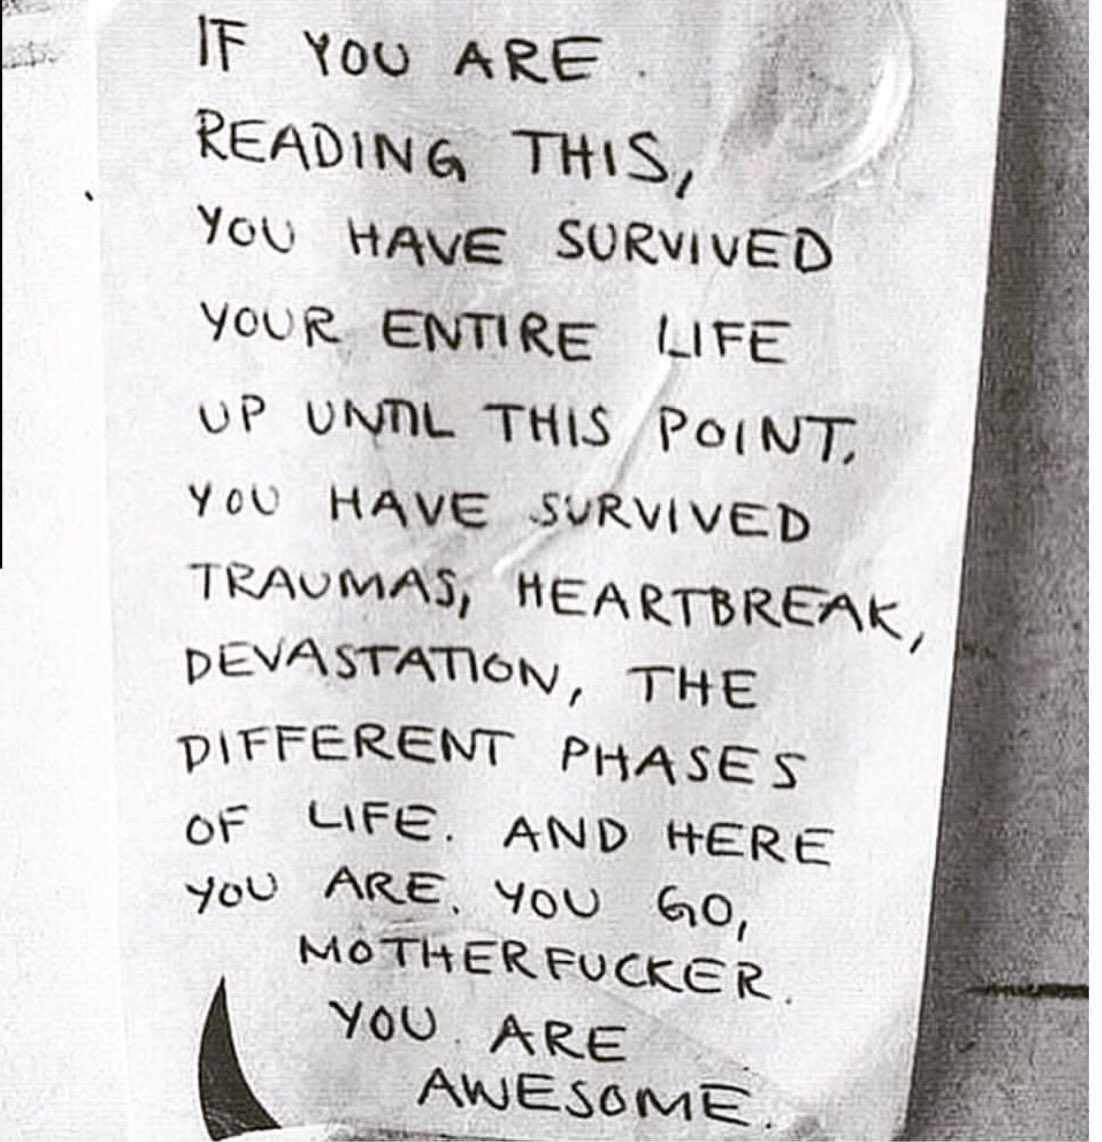 IF YOU ARE
READING THIS,
YOU HAVE SURVIVED
YOUR ENTIRE LIFE
UP UNTIL THIS POINT.
YOU HAVE SURVIVED
TRAUMAS, HEARTBREAK,
DEVASTATION, THE
DIFFERENT PHASES
OF LIFE. AND HERE
YOU ARE. YOU GO,
MOTHERFUCKER.
YOU ARE
AWESOME.